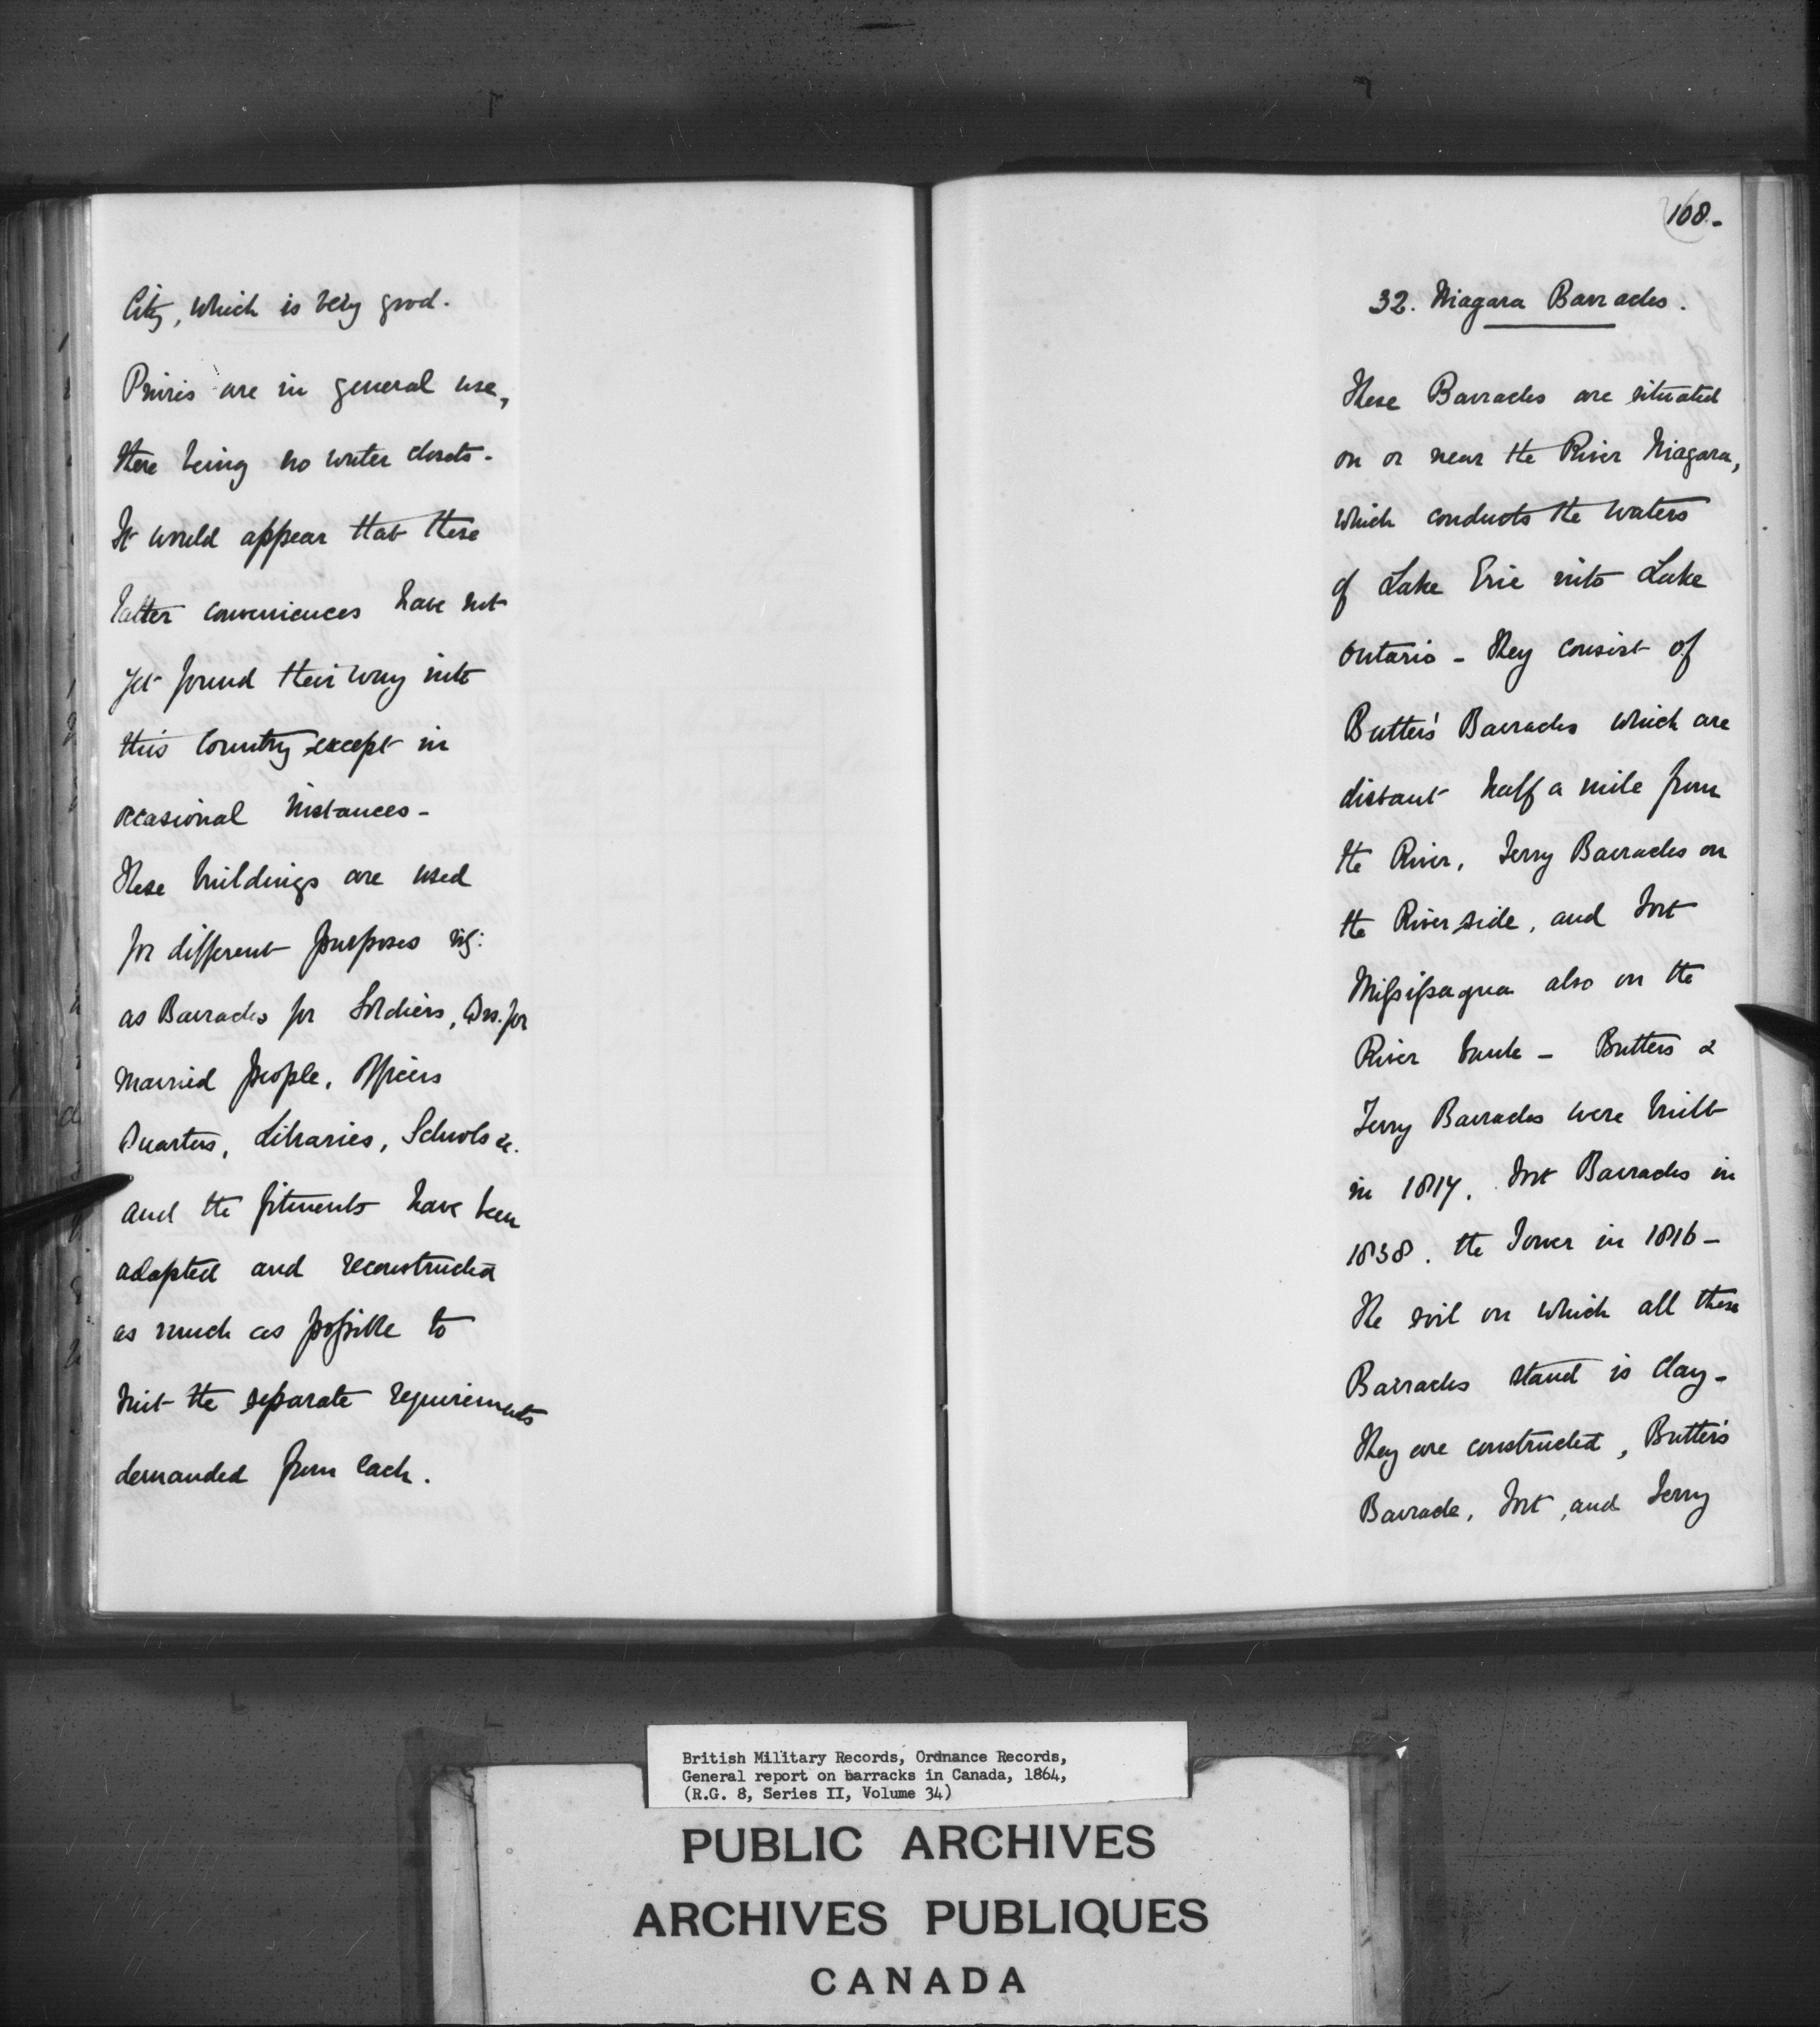 City, which is very good.
Privies are in general use,
there being no water closets -
It would appear that these
latter conveniences have not
yet found their way into
this Country except in
occasional instances -
These buildings are used
for different purposes viz:
as Barracks for Soldiers, Do. for
married people, Officers
Quarters, Libraries, Schools &c.
and the fitments have been
adapted and reconstructed
as much as possible to
suit the separate requirements
demanded from each.
108.-
32. Niagara Barracks.
These Barracks are situated
on or near the River Niagara,
which conducts the waters
of Lake Erie into Lake
Ontario - They consist of
Butter's Barracks which are
distant half a mile from
the River, Ferry Barracks on
the River side, and Fort
Missisagua also on the
River bank - Butters &
Ferry Barracks were built
in 1817. Fort Barracks in
1838. the Tower in 1816 -
The soil on which all these
Barracks stand is Clay -
They are constructed, Butter's
Barrack, Fort, and Ferry
British Military Records, Ordnance Records,
General report on barracks in Canada, 1864,
(R.G. 8, Series II, Volume 34)
PUBLIC ARCHIVES
ARCHIVES PUBLIQUES
CANADA